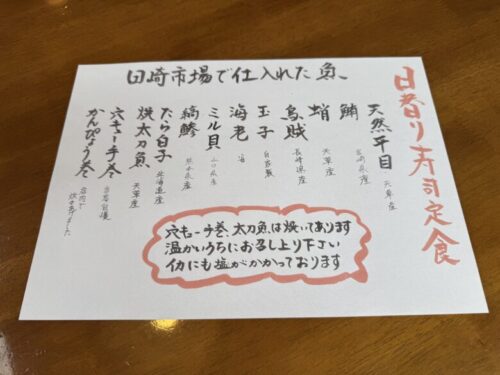 日替り寿司定食
田崎市場で仕入れた魚、
天然平目 天草産
鮪 宮崎県産
蛸 天草産
烏賊 長崎県産
玉子 自家製
海老
ミル貝 山口県産
縞鯵 熊本県産
たら白子 北海道産
焼太刀魚 天草産
穴きゅー手巻 当店自慢
かんぴょう巻 店内で
炊きあげました
穴きゅー手巻、太刀魚は焼いてあります
温かいうちにお召し上り下さい
イカにも塩がかかっております